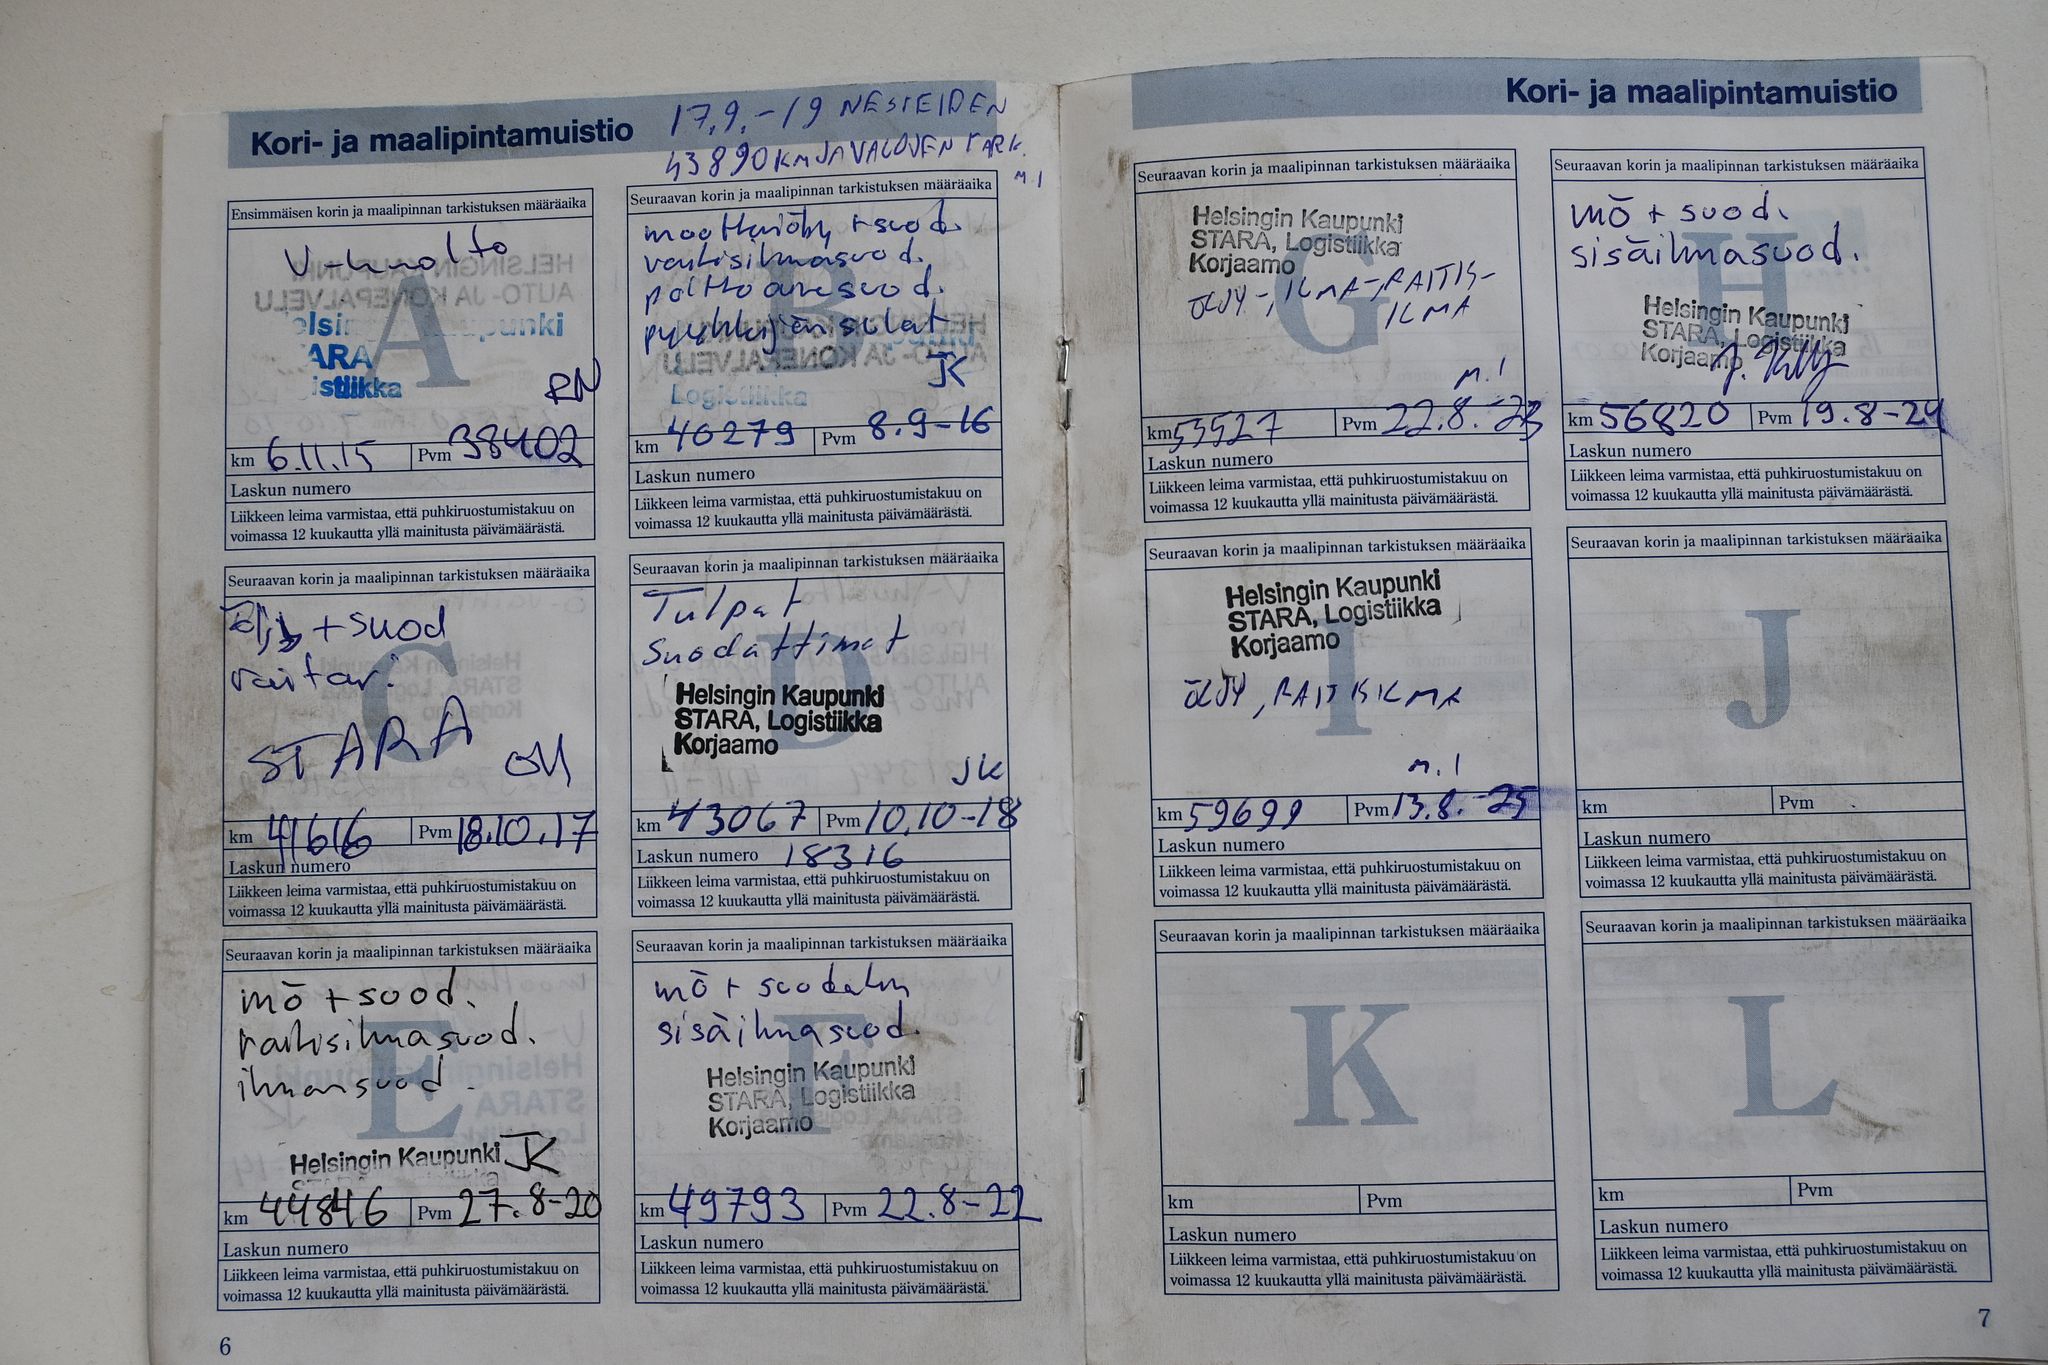 Kori- ja maalipintamuistio
17.9.-19 NESTEIDEN
43890 KM JA VALOJEN TARK.
M.I
Ensimmäisen korin ja maalipinnan tarkistuksen määräaika
V-huolto
Helsingin Kaupunki
STARA
Logistiikka
RN
km 6.11.15 Pvm 38402
Laskun numero
Liikkeen leima varmistaa, että puhkiruostumistakuu on
voimassa 12 kuukautta yllä mainitusta päivämäärästä.
Seuraavan korin ja maalipinnan tarkistuksen määräaika
moottoriöljy + suod.
raitisilmasuod.
polttoainesuod.
pyyhkijän sulat
JK
Logistiikka
km 40279 Pvm 8.9-16
Laskun numero
Liikkeen leima varmistaa, että puhkiruostumistakuu on
voimassa 12 kuukautta yllä mainitusta päivämäärästä.
Seuraavan korin ja maalipinnan tarkistuksen määräaika
+ suod
STARA
km 41616 Pvm 18.10.17
Laskun numero
Liikkeen leima varmistaa, että puhkiruostumistakuu on
voimassa 12 kuukautta yllä mainitusta päivämäärästä.
Seuraavan korin ja maalipinnan tarkistuksen määräaika
Tulpat
Suodattimet
Helsingin Kaupunki
STARA, Logistiikka
Korjaamo
JK
km 43067 Pvm 10.10-18
Laskun numero 18316
Liikkeen leima varmistaa, että puhkiruostumistakuu on
voimassa 12 kuukautta yllä mainitusta päivämäärästä.
Seuraavan korin ja maalipinnan tarkistuksen määräaika
mö + suod.
raitisilmasuod.
ilmansuod.
E
Helsingin Kaupunki JK
STARA, Logistiikka
km 44846 Pvm 27.8-20
Laskun numero
Liikkeen leima varmistaa, että puhkiruostumistakuu on
voimassa 12 kuukautta yllä mainitusta päivämäärästä.
Seuraavan korin ja maalipinnan tarkistuksen määräaika
mö + suodatin
sisäilmasuod.
F
Helsingin Kaupunki
STARA, Logistiikka
Korjaamo
km 49793 Pvm 22.8-22
Laskun numero
Liikkeen leima varmistaa, että puhkiruostumistakuu on
voimassa 12 kuukautta yllä mainitusta päivämäärästä.
6
Kori- ja maalipintamuistio
Seuraavan korin ja maalipinnan tarkistuksen määräaika
Helsingin Kaupunki
STARA, Logistiikka
Korjaamo
G
ÖLJY-, ILMA-, RAITIS-
ILMA
M.I
km 53527 Pvm 22.8.-23
Laskun numero
Liikkeen leima varmistaa, että puhkiruostumistakuu on
voimassa 12 kuukautta yllä mainitusta päivämäärästä.
Seuraavan korin ja maalipinnan tarkistuksen määräaika
mö + suod.
sisäilmasuod.
H
Helsingin Kaupunki
STARA, Logistiikka
Korjaamo
km 56820 Pvm 19.8-24
Laskun numero
Liikkeen leima varmistaa, että puhkiruostumistakuu on
voimassa 12 kuukautta yllä mainitusta päivämäärästä.
Seuraavan korin ja maalipinnan tarkistuksen määräaika
Helsingin Kaupunki
STARA, Logistiikka
Korjaamo
I
ÖLJY, RAITISILMA
M.I
km 59699 Pvm 13.8.-25
Laskun numero
Liikkeen leima varmistaa, että puhkiruostumistakuu on
voimassa 12 kuukautta yllä mainitusta päivämäärästä.
Seuraavan korin ja maalipinnan tarkistuksen määräaika
J
km Pvm
Laskun numero
Liikkeen leima varmistaa, että puhkiruostumistakuu on
voimassa 12 kuukautta yllä mainitusta päivämäärästä.
Seuraavan korin ja maalipinnan tarkistuksen määräaika
K
km Pvm
Laskun numero
Liikkeen leima varmistaa, että puhkiruostumistakuu on
voimassa 12 kuukautta yllä mainitusta päivämäärästä.
Seuraavan korin ja maalipinnan tarkistuksen määräaika
L
km Pvm
Laskun numero
Liikkeen leima varmistaa, että puhkiruostumistakuu on
voimassa 12 kuukautta yllä mainitusta päivämäärästä.
7